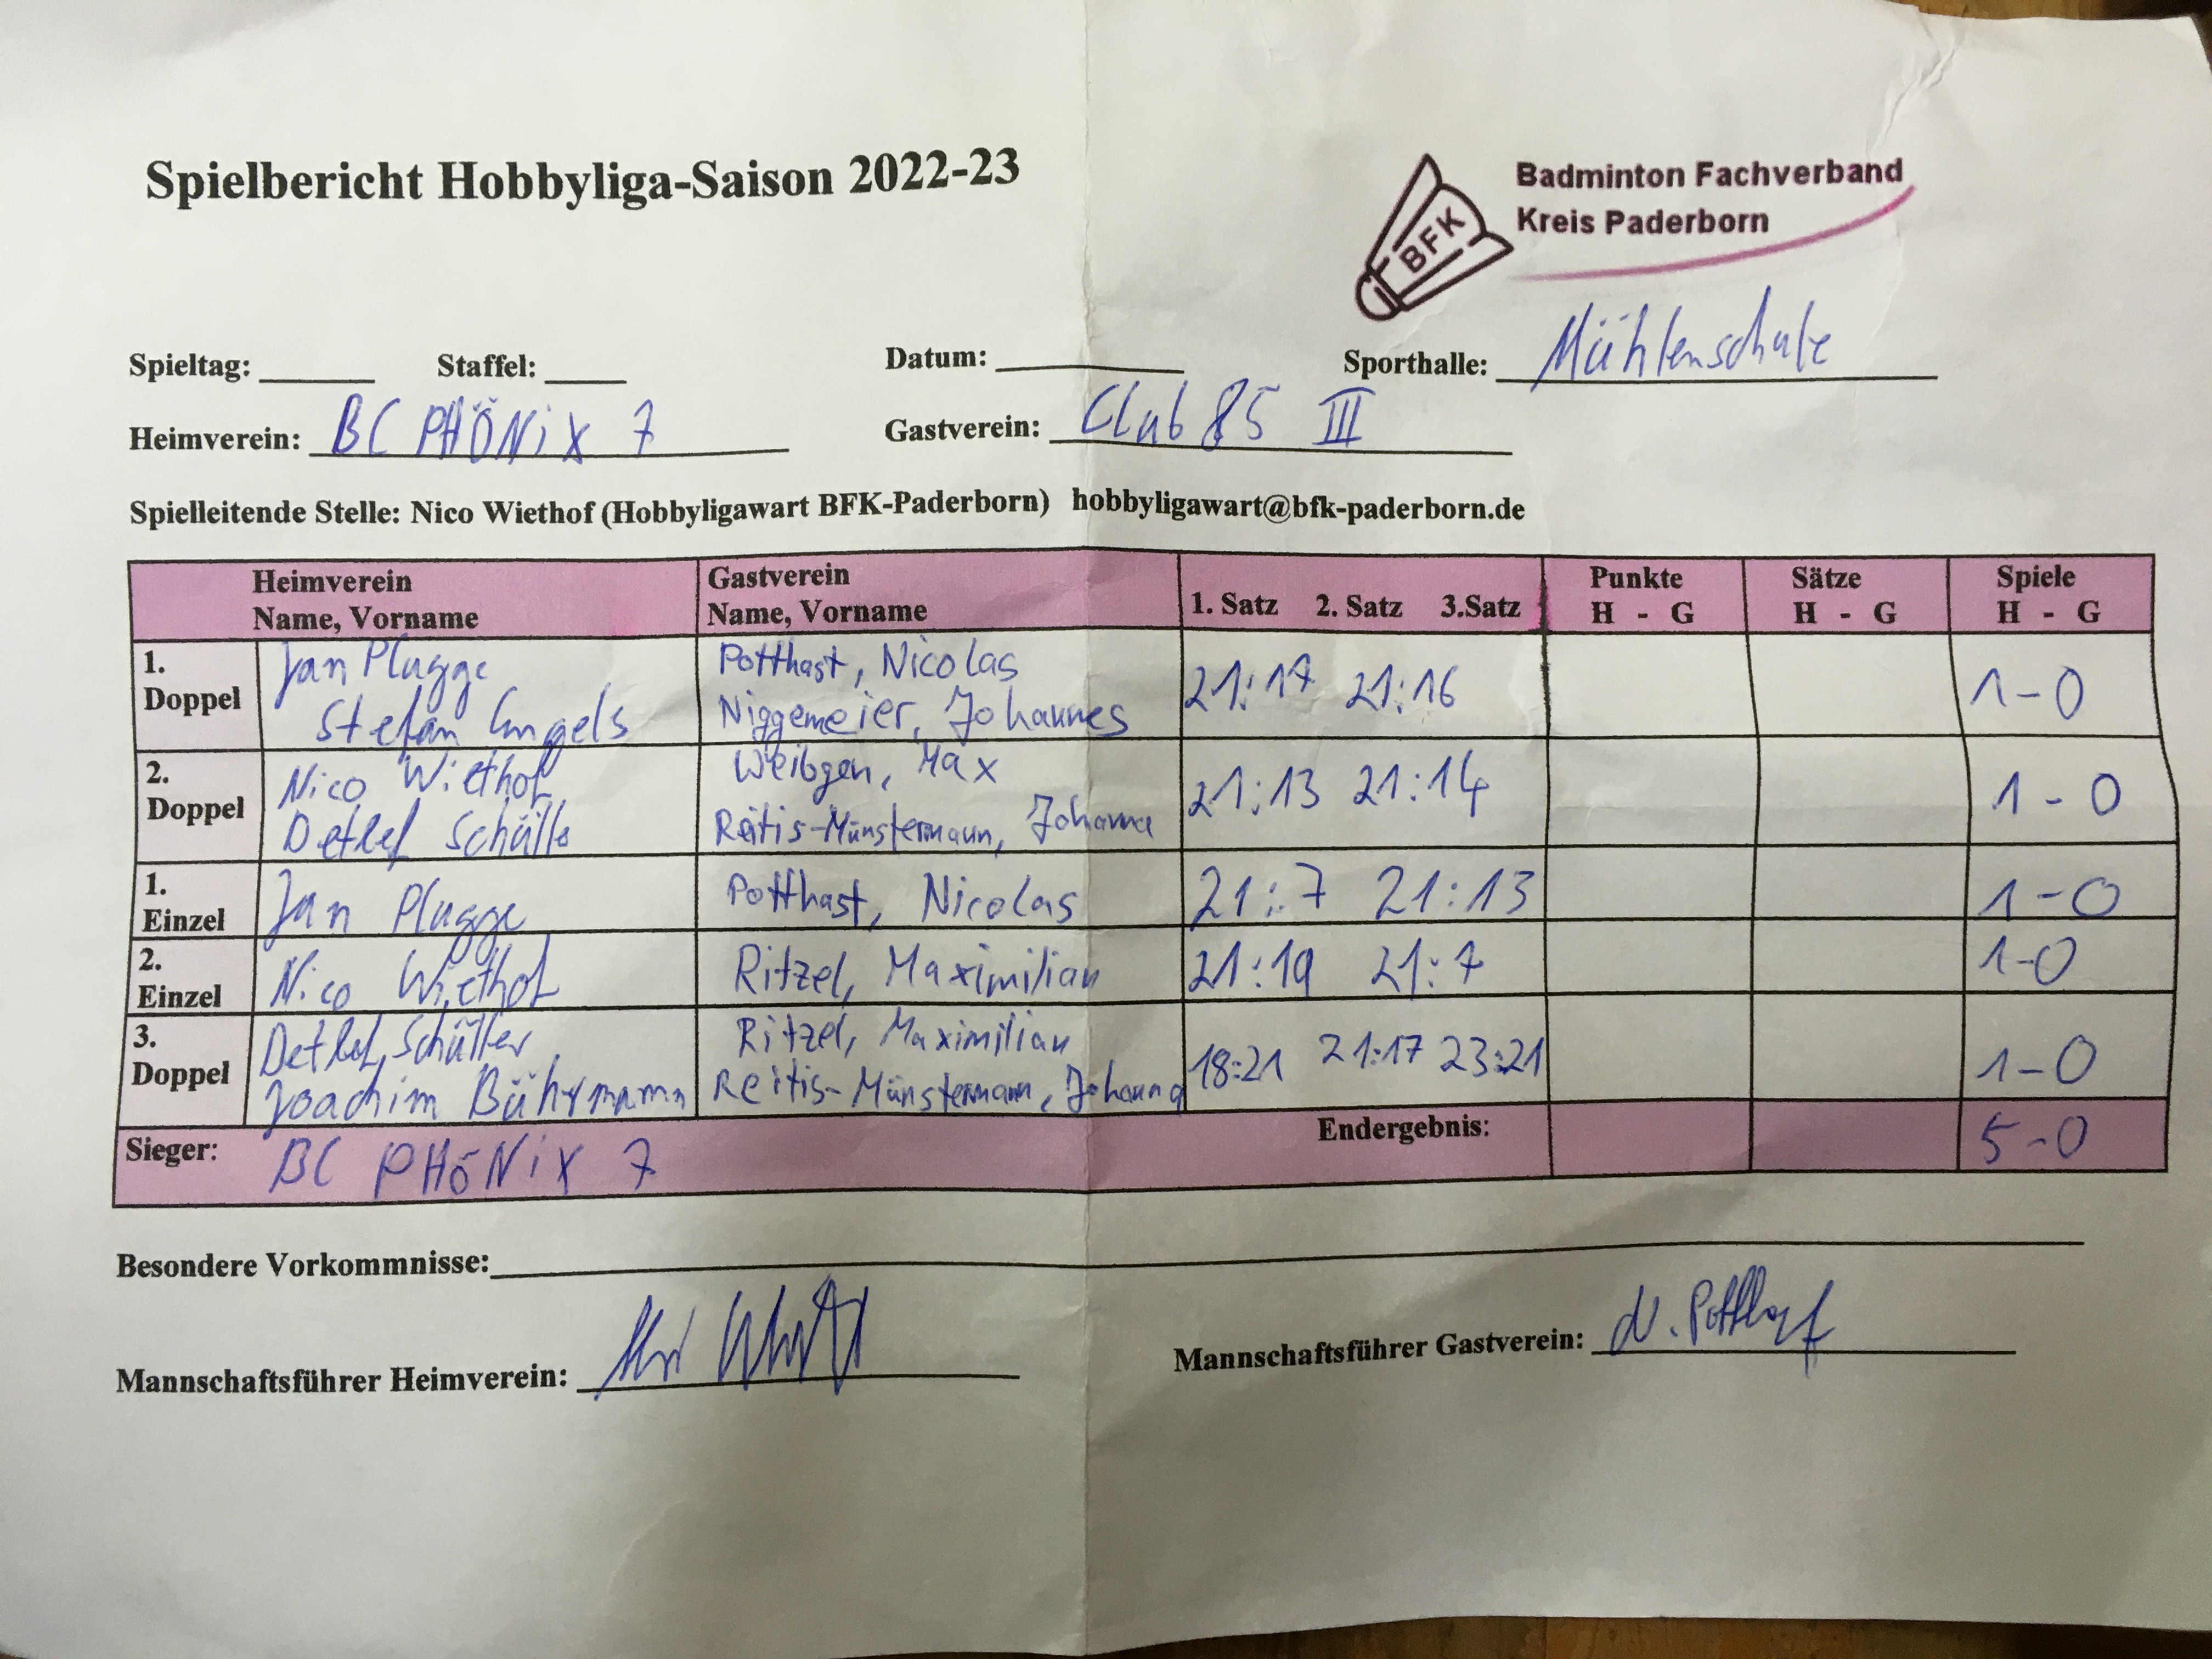 Spielbericht Hobbyliga-Saison 2022-23
BFK
Badminton Fachverband
Kreis Paderborn
Spieltag: Staffel: Datum: Sporthalle: Mühlenschule
Heimverein: BC PHÖNiX 7 Gastverein: Club 85 III
Spielleitende Stelle: Nico Wiethof (Hobbyligawart BFK-Paderborn) hobbyligawart@bfk-paderborn.de
Heimverein Gastverein Punkte Sätze Spiele
Name, Vorname Name, Vorname 1. Satz 2. Satz 3.Satz H - G H - G H - G
1. Jan Plugge Potthast, Nicolas
Doppel Stefan Engels Niggemeier, Johannes 21:17 21:16 1-0
2. Nico Wiethof Weibgen, Max
Doppel Detlef Schülle Reitis-Münstermann, Johanna 21:13 21:14 1-0
1.
Einzel Jan Plugge Potthast, Nicolas 21:7 21:13 1-0
2.
Einzel Nico Wiethof Ritzel, Maximilian 21:19 21:7 1-0
3. Detlef, Schüller Ritzel, Maximilian
Doppel Joachim Bührmann Reitis-Münstermann, Johanna 18:21 21:17 23:21 1-0
Sieger: BC PHÖNiX 7 Endergebnis: 5-0
Besondere Vorkommnisse:
Mannschaftsführer Heimverein: Mannschaftsführer Gastverein: N. Potthast